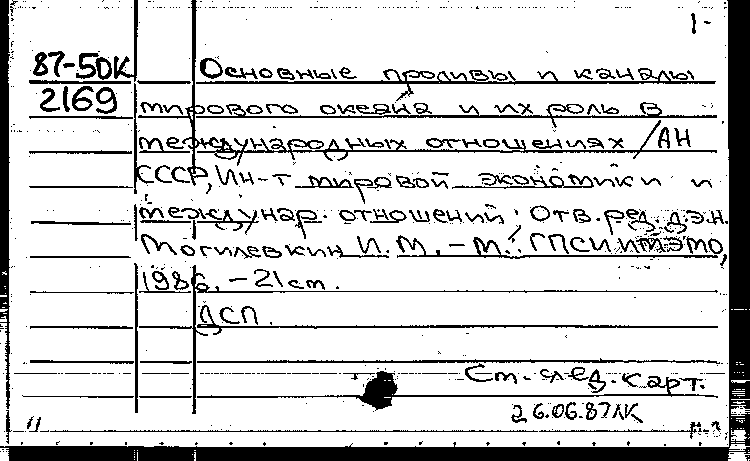 1-
87-5DK Основные проливы и каналы
2169 мирового океана и их роль в
международных отношениях / АН
СССР, Ин-т мировой экономики и
междунар. отношений; Отв. ред. д.э.н.
Могилевкин И.М. - М.: ГПСИ ИМЭМО,
1986. - 21 см.
ДСП.
См. след. карт.
26.06.87
11